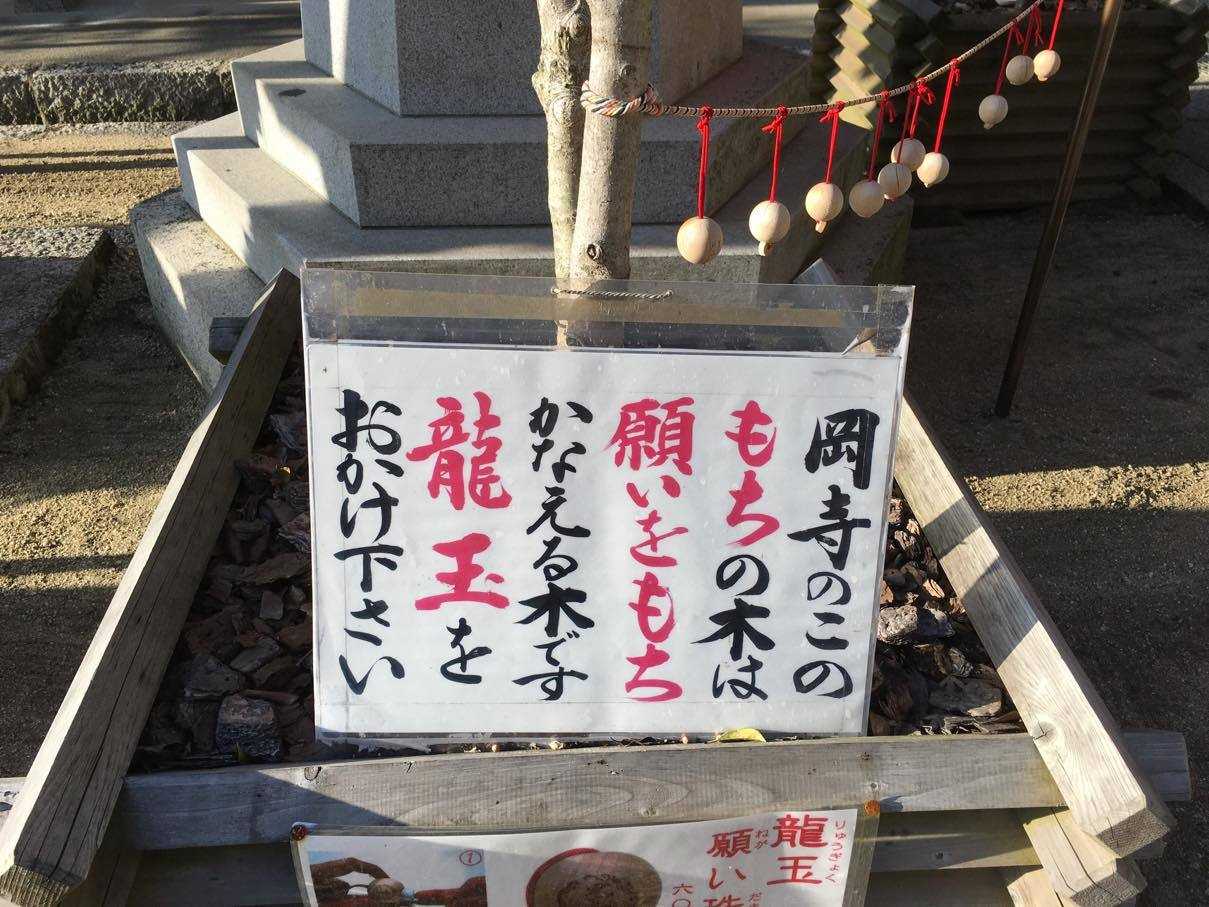 岡寺のこの
もちの木は
願いをもち
かなえる木です
龍玉を
おかけ下さい
龍玉
りゅうぎょく
願い珠
ねが
だま
六〇
①